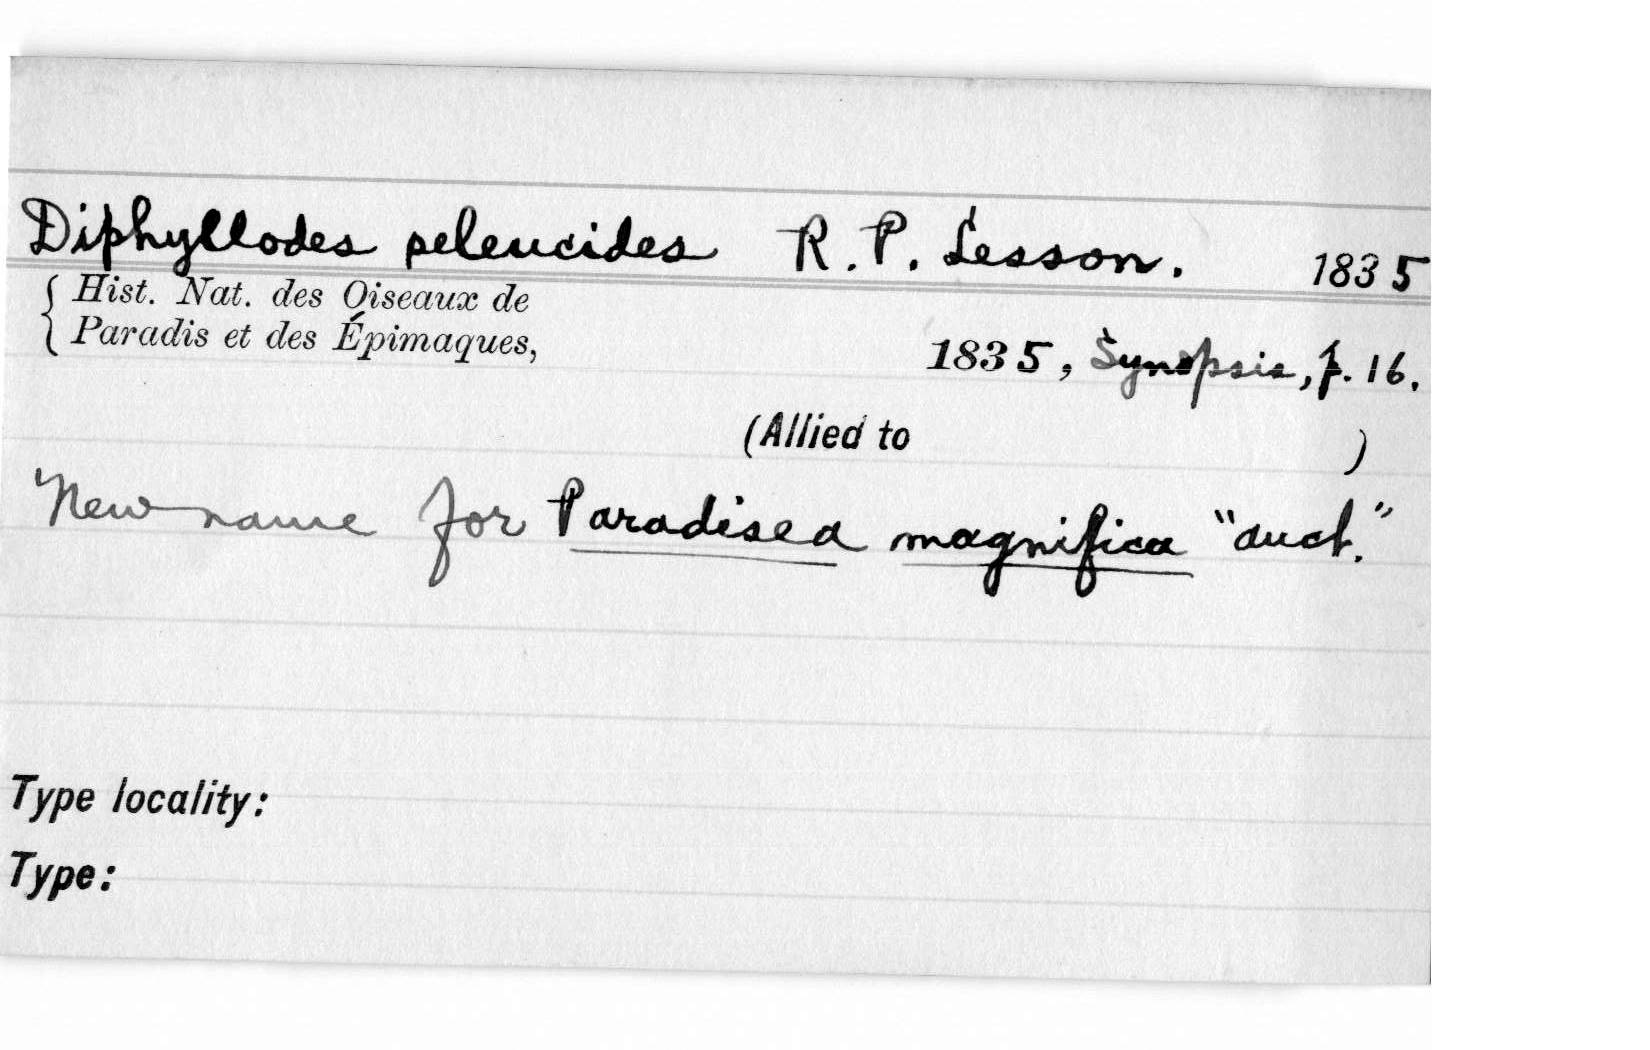 Diphyllodes seleucides R. P. Lesson. 1835
Hist. Nat. des Oiseaux de
Paradis et des Épimaques,
1835, Synopsis, p. 16.
(Allied to )
New name for Paradisea magnifica "auct."
Type locality:
Type: